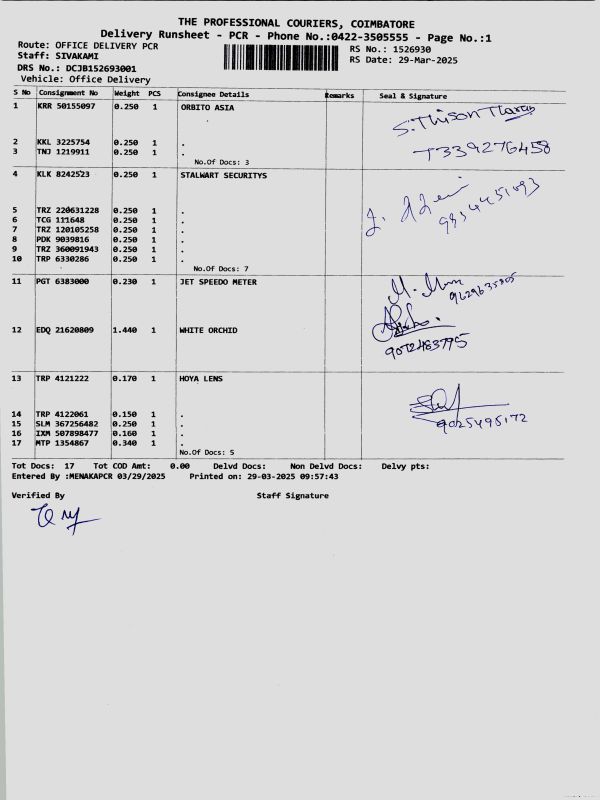 THE PROFESSIONAL COURIERS, COIMBATORE
Delivery Runsheet - PCR - Phone No.:0422-3505555 - Page No.:1
Route: OFFICE DELIVERY PCR
Staff: SIVAKAMI
DRS No.: DCJB152693001
Vehicle: Office Delivery
RS No.: 1526930
RS Date: 29-Mar-2025
S No Consignment No Weight PCS Consignee Details Remarks Seal & Signature
1 KRR 50155097 0.250 1 ORBITO ASIA
2 KKL 3225754 0.250 1 .
3 TNJ 1219911 0.250 1 .
No.Of Docs: 3
4 KLK 8242523 0.250 1 STALWART SECURITYS
5 TRZ 220631228 0.250 1 .
6 TCG 111648 0.250 1 .
7 TRZ 120105258 0.250 1 .
8 PDK 9039816 0.250 1 .
9 TRZ 360091943 0.250 1 .
10 TRP 6330286 0.250 1 .
No.Of Docs: 7
11 PGT 6383000 0.230 1 JET SPEEDO METER
12 EDQ 21620809 1.440 1 WHITE ORCHID
9072463795
13 TRP 4121222 0.170 1 HOYA LENS
14 TRP 4122061 0.150 1 .
9025495172
15 SLM 367256482 0.250 1 .
16 IXM 507898477 0.160 1 .
17 MTP 1354867 0.340 1 .
No.Of Docs: 5
Tot Docs: 17 Tot COD Amt: 0.00 Delvd Docs: Non Delvd Docs: Delvy pts:
Entered By :MENAKAPCR 03/29/2025 Printed on: 29-03-2025 09:57:43
Verified By Staff Signature